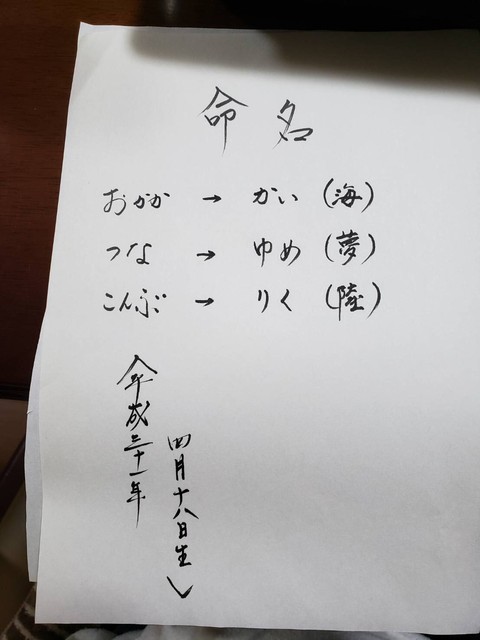 命名
おかか → かい (海)
つな → ゆめ (夢)
こんぶ → りく (陸)
平成三十一年
四月十八日生